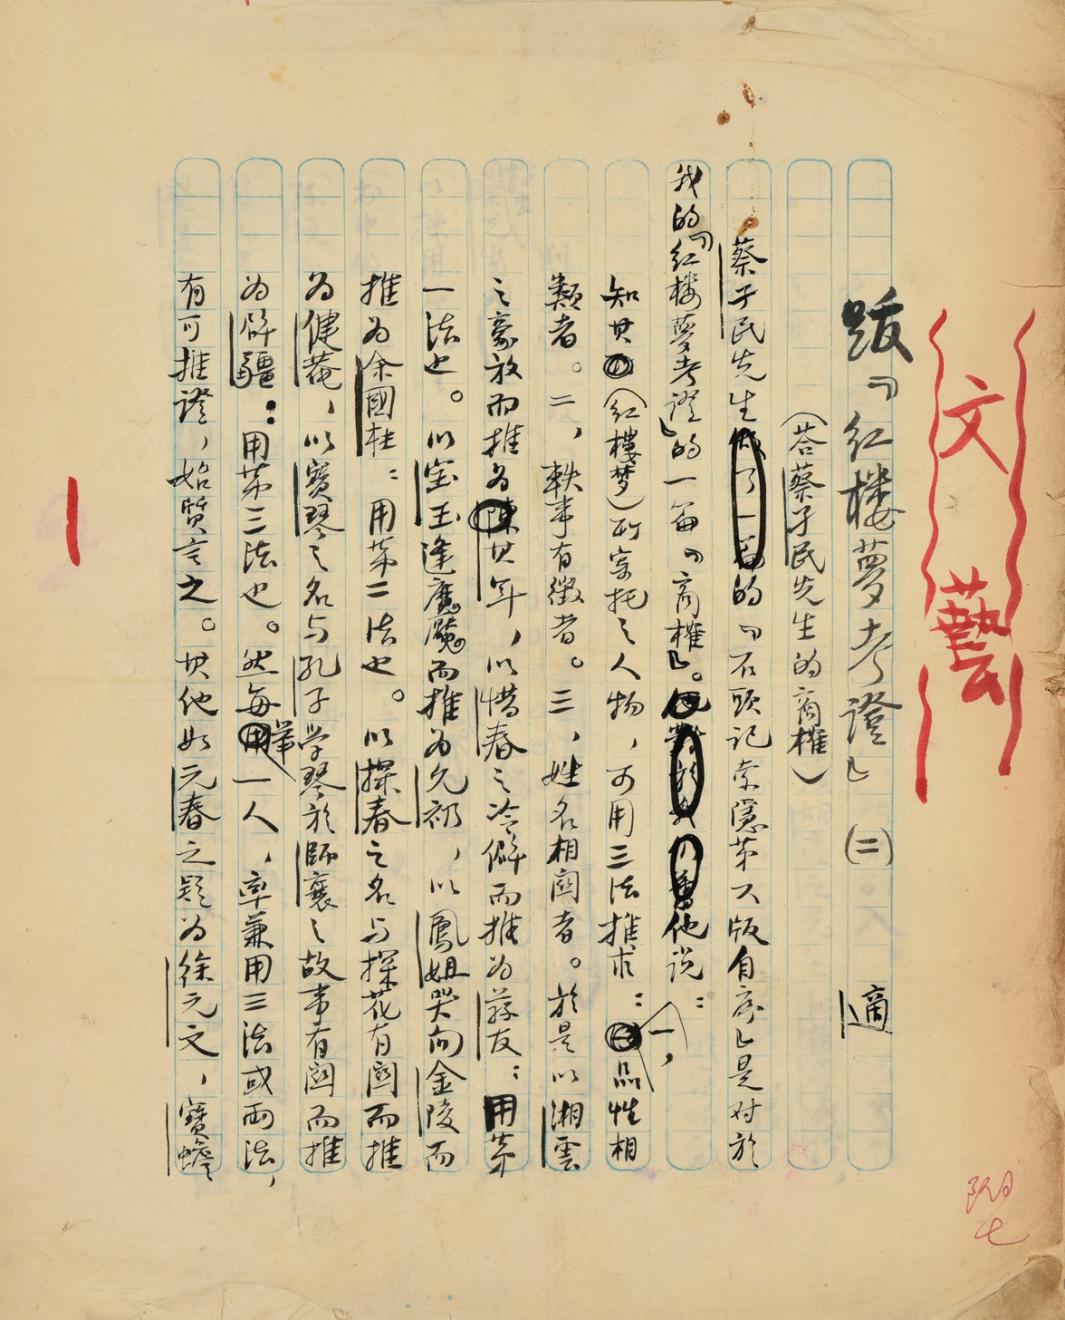 文藝
跋『紅楼夢考證』(二) 適
(答蔡孑民先生的商榷)
蔡孑民先生的『石頭記索隱第六版自序』是对於
我的『紅楼夢考證』的一篇『商榷』。他说：
知其(紅樓梦)所寄托之人物，可用三法推求：一，品性相
類者。二，軼事有徵者。三，姓名相関者。於是以湘雲
之豪放而推为其年，以惜春之冷僻而推为蓀友：用第
一法也。以宝玉逢魔魘而推为允礽，以鳳姐哭向金陵而
推为余國柱：用第二法也。以探春之名与探花有関而推
为健菴，以寶琴之名与孔子学琴於師襄之故事有関而推
为辟疆：用第三法也。然每舉一人，率兼用三法或兩法，
有可推證，始質言之。其他如元春之疑为徐元文，寶蟾
七